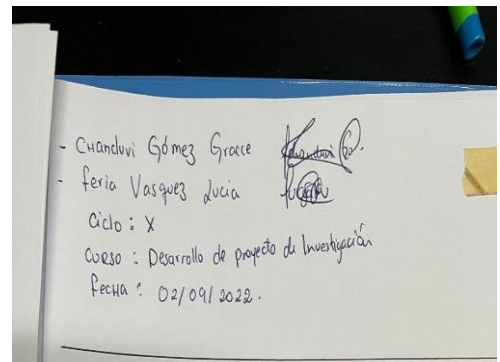 - CHanduvi Gómez Grace
- feria Vasquez Lucia
Ciclo : X
CURSO : Desarrollo de proyecto de Investigación
fecHa : 02/09/2022.